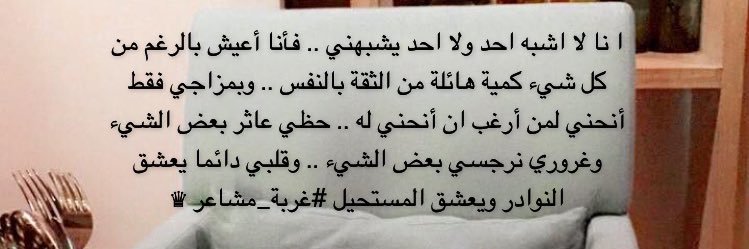 ا نا لا اشبه احد ولا احد يشبهني .. فأنا أعيش بالرغم من
كل شيء كمية هائلة من الثقة بالنفس .. وبمزاجي فقط
أنحني لمن أرغب ان أنحني له .. حظي عاثر بعض الشيء
وغروري نرجسي بعض الشيء .. وقلبي دائما يعشق
النوادر ويعشق المستحيل #غربة_مشاعر ♛